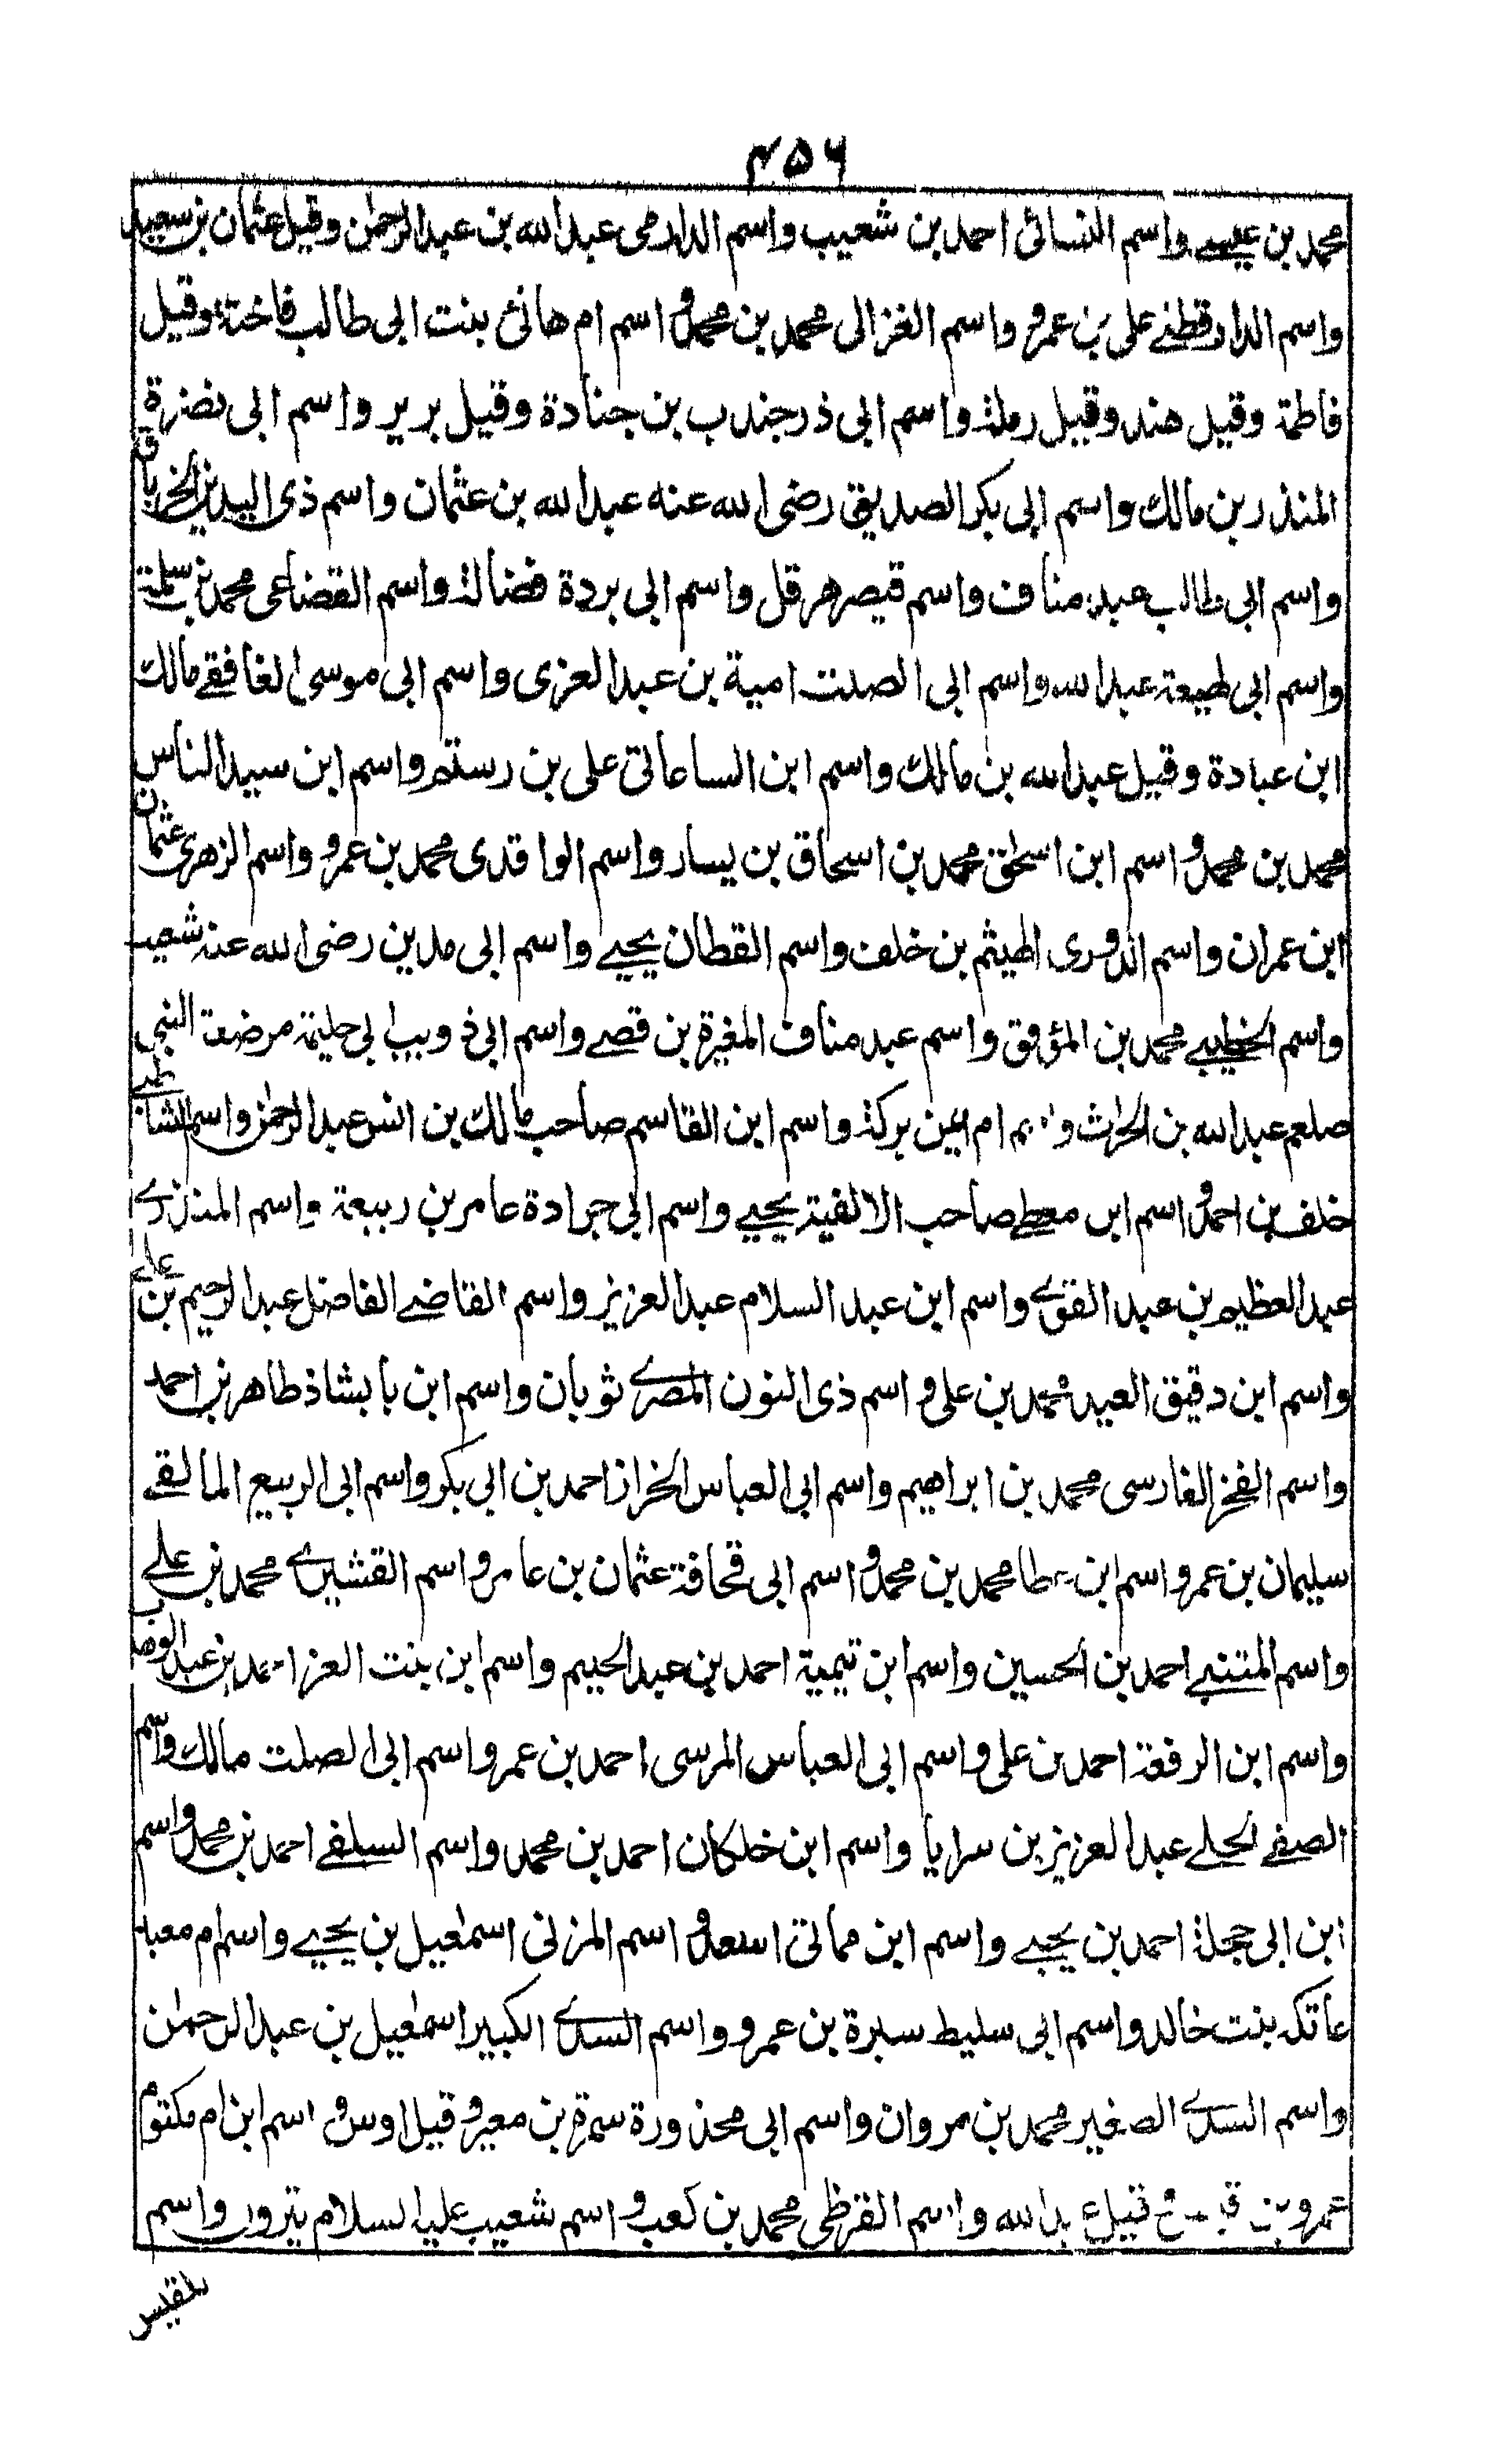 ۴۵۶
محمد بن عيسے واسم النسائى احمد بن شعيب واسم الدارمى عبد الله بن عبد الرحمٰن وقيل عثمان بن سعيد
واسم الدارقطنے على بن عمرو واسم الغزالى محمد بن محمد واسم ام هانئ بنت ابى طالب فاختة وقيل
فاطمة وقيل هند وقيل رملة واسم ابى ذر جندب بن جنادة وقيل برير واسم ابى نضرة
المنذر بن مالك واسم ابى بكر الصديق رضى الله عنه عبد الله بن عثمان واسم ذى اليدين الخرباق
واسم ابى طالب عبد مناف واسم قيصر هرقل واسم ابى بردة فضالة واسم القضاعى محمد بن سلمة
واسم ابى طيبعة عبد الله واسم ابى الصلت امية بن عبد العزى واسم ابى موسى الغافقے مالك
ابن عبادة وقيل عبد الله بن مالك واسم ابن الساعاتى على بن رستم واسم ابن سيد الناس
محمد بن محمد واسم ابن اسحٰق محمد بن اسحاق بن يسار واسم الواقدى محمد بن عمرو واسم الزهرى عثمان
ابن عمران واسم الدورى الهيثم بن خلف واسم القطان يحيے واسم ابى مدين رضى الله عنه شعيب
واسم الخطيبے محمد بن المؤفق واسم عبد مناف المغيرة بن قصے واسم ابى ذويب ابى حليمة مرضعة النبى
صلعم عبد الله بن الحرث و ام ايمن بركة واسم ابن القاسم صاحب مالك بن انس عبد الرحمٰن واسم الشاطبے
خلف بن احمد واسم ابن معطے صاحب الالفية يحيے واسم ابى جرادة عامر بن ربيعة واسم المنذرے
عبد العظيم بن عبد القوے واسم ابن عبد السلام عبد العزيز واسم القاضے الفاضل عبد الرحيم بن علے
واسم ابن دقيق العيد محمد بن على واسم ذى النون المصرے ثوبان واسم ابن بابشاذ طاهر بن احمد
واسم الفخر الفارسى محمد بن ابراهيم واسم ابى العباس الخراز احمد بن ابى بكر واسم ابى الربيع المالقے
سليمان بن عمر واسم ابن عطا محمد بن محمد واسم ابى قحافة عثمان بن عامر واسم القشيرے محمد بن علے
واسم المتنبے احمد بن الحسين واسم ابن تيمية احمد بن عبد الحليم واسم ابن بنت العز احمد بن عبد الوهاب
واسم ابن الرفعة احمد بن على واسم ابى العباس المرسى احمد بن عمر واسم ابى الصلت مالك واسم
الصفے الحلے عبد العزيز بن سرايا واسم ابن خلكان احمد بن محمد واسم السلفے احمد بن محمد واسم
ابن ابى حجلة احمد بن يحيے واسم ابن مماتى اسعد واسم المزنى اسمٰعيل بن يحيے واسم ام معبد
عاتكه بنت خالد واسم ابى سليط سبرة بن عمرو واسم السدے الكبير اسمٰعيل بن عبد الرحمٰن
واسم السدے الصغير محمد بن مروان واسم ابى محذورة سمرة بن معير وقيل اوس و اسم ابن ام مكتوم
عمرو بن وقيل عبد الله واسم القرظى محمد بن كعب واسم شعيب عليه السلام يترون واسم
بلقيس